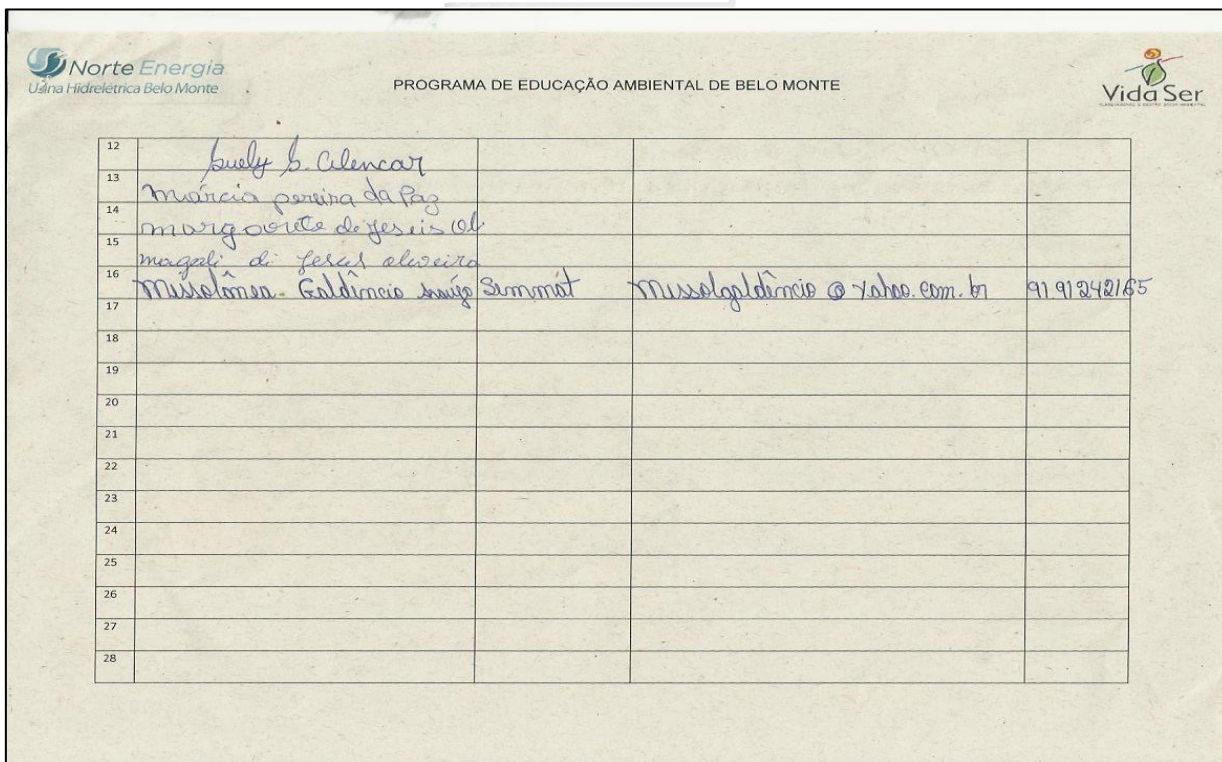 Norte Energia
Usina Hidrelétrica Belo Monte
PROGRAMA DE EDUCAÇÃO AMBIENTAL DE BELO MONTE
Vida Ser
12 Suely S. Alencar
13 Márcia pereira da Paz
14 margarete de Jesus Ol
15 magali de Jesus oliveira
16 Missolônea Galdîncio Semmat Missolgaldîncio @ yahoo.com.br 91.91242165
17
18
19
20
21
22
23
24
25
26
27
28